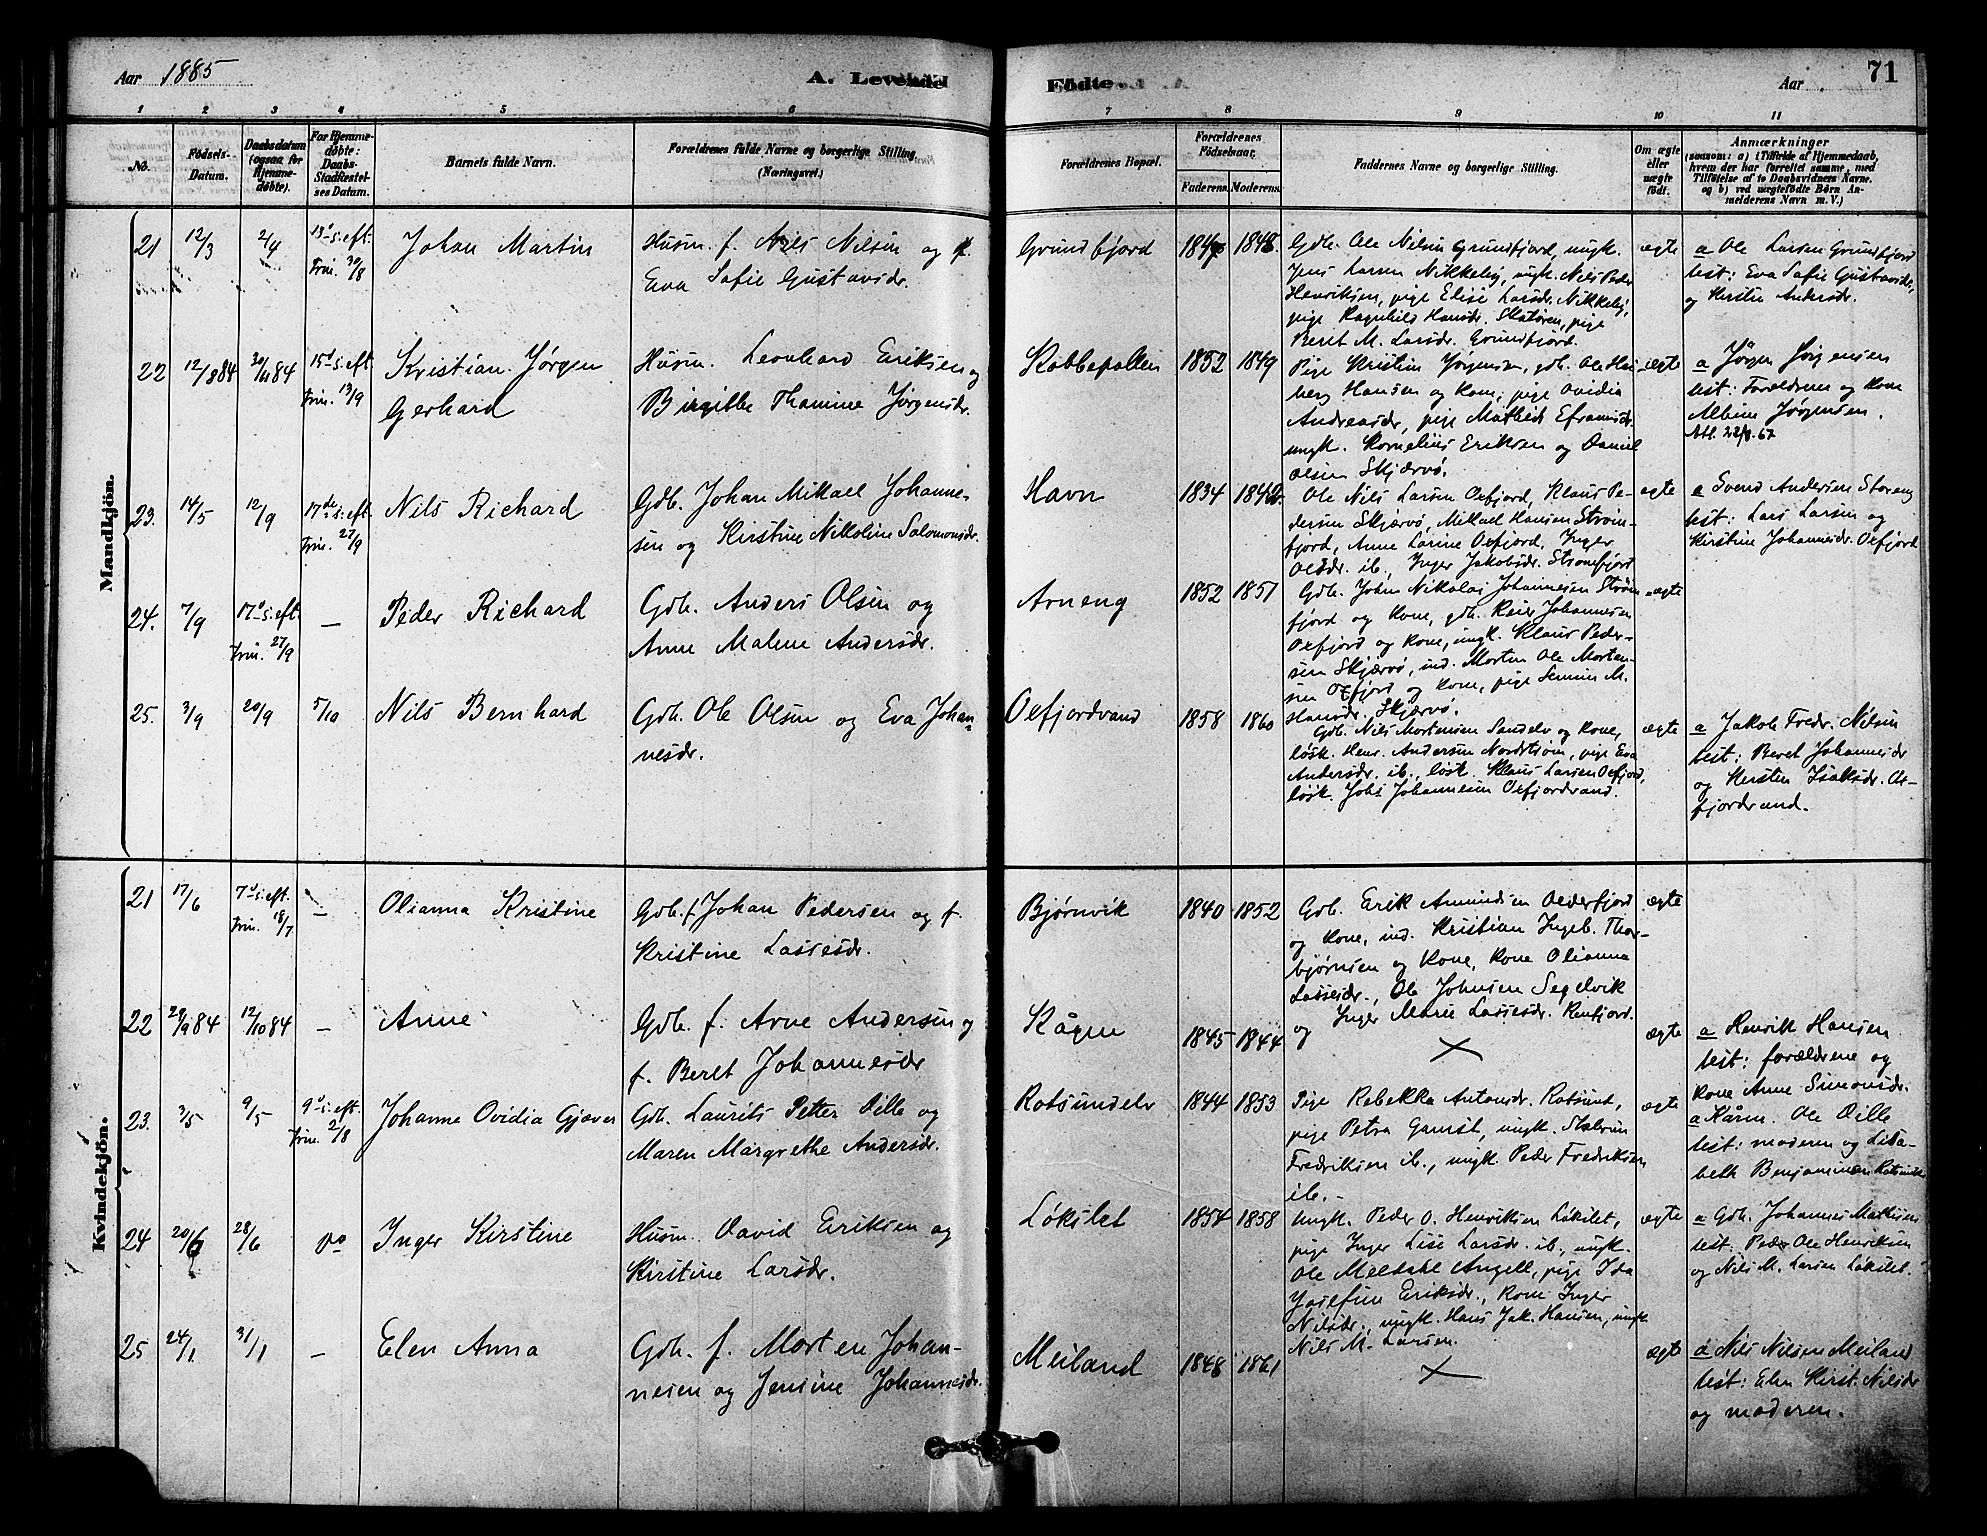 Aar 1885
A. Levende
Födte.
Aar
71
1 2 3 4 5 6 7 8 9 10 11
No.
Födsels-
Datum.
Daabsdatum
(ogsaa for
Hjemme-
døbte).
For Hjemme-
døbte:
Daabs-
Stadfæstel-
ses Datum.
Barnets fulde Navn.
Forældrenes fulde Navne og borgerlige Stilling.
(Næringsvei.)
Forældrenes Bopæl.
Forældrenes
Födselsaar.
Faderens. Moderens.
Faddernes Navne og borgerlige Stilling.
Om ægte
eller
uægte
födt.
Anmærkninger
(saasom: a) i Tilfælde af Hjemmedaab,
hvem der har forrettet samme, med
Tilföielse af to Daabsvidners Navne,
og b) ved uægtefödte Börn An-
melderens Navn m. V.)
Mandkjön.
21 12/3 2/4 13d s. eft.
Trin. 30/8
Johan Martin
Husm. f. Nils Nilsen og f.
Eva Sofie Gustavsdr.
Grundfjord
1848
Gdb. Ole Nilsen Grundfjord, ungk.
Jens Larsen Nikkeby, ungk. Nils Peder
Henriksen, pige Elise Larsdr. Nikkeby,
pige Ragnhild Hansdr. Skatøren, pige
Beret M. Larsdr. Grundfjord.
ægte
a Ole Larsen Grundfjord
test: Eva Sofie Gustavsdr,
og Kirstin Andersdr.
22 12/8 84 30/11 84 15d s. eft.
Trin. 13/9
Kristian Jørgen
Gerhard
Husm. Leonhard Eriksen og
Birgitte Thamine Jørgensdr.
Kobbepollen
1852 1849
Pige Kristin Jørgensen, gdb. Ole Han-
berg Hansen og Kone, pige Ovidia
Andreasdr, pige Mathea Eframsdr.
ungk. Kornelius Eriksen og Daniel
Olsen Skjærvø.
ægte
a Jørgen Jørgensen
test: Forældrene og Kone
Albine Jørgensen.
Att. 22/8.67
23. 14/5 12/9 17de s. eft.
Trin. 27/9
Nils Richard
Gdb. Johan Mikael Johanne-
sen og Kirstine Nikoline Salomonsdr.
Havn
1834 1842
Ole Nils Larsen Oxfjord, Klaus Pe-
dersen Skjærvø, Mikael Hansen Strøm-
fjord, Anne Larine Oxfjord, Inger
Olsdr. ib., Inger Jakobsdr. Strømfjord
ægte
a Svend Andersen Storeng
test: Lars Larsen og
Kirstine Johannesdr. Oxfjord
24. 7/9 17d s. eft.
Trin. 27/9 —
Peder Richard
Gdb. Anders Olsen og
Anne Malene Andersdr.
Arneng
1852 1851
Gdb. John Nikolai Johannesen Strøm-
fjord og Kone, gdb. Reier Johannesen
Oxfjord og Kone, ungk. Klaus Peder-
sen Skjærvø, ind. Morten Ole Morten-
sen Oxfjord og Kone, pige Semine M.
Hansdr. Skjærvø.
ægte
25. 3/9 20/9 5/10
Nils Bernhard
Gdb. Ole Olsen og Eva Johan-
nesdr.
Oxfjordvand
1858 1860
Gdb. Nils Mortensen Sandelv og Kone,
løsk. Henr. Andersen Nordstrøm, pige Eva
Andersdr. ib., løsk. Klaus Larsen Oxfjord,
løsk. Johs Johannesen Oxfjordvand.
ægte
a Jakob Fredr. Nilsen
test: Beret Johannesdr
og Kersten Isaksdr. Ox-
fjordvand.
Kvindekjön.
21 17/6 7d s. eft.
Trin. 18/7 —
Olianna Kristine
Gdb. f. Johan Pedersen og f.
Kristine Lassesdr.
Bjørnvik
1840 1852
Gdb. Erik Amundsen Oxderfjord
og Kone, ind. Kristian Ingeb. Thor-
bjørnsen og Kone, Kone Olianna
Lassesdr., Ole Johnsen Segelvik
og Inger Marie Lassesdr. Renfjord.
ægte
22 29/9 84 12/10 84 —
Anne
Gdb. f. Arne Andersen og
f. Beret Johannesdr
Kågen
1845 1844
×
ægte
a Henrik Hansen
test: forældrene og
Kone Anne Simonsdr.
23. 3/5 9/5 9d s. eft.
Trin. 2/8
Johanne Ovidia Gjæver
Gdb. Laurits Petter Dille og
Maren Margrethe Andersdr.
Rotsundelv
1844 1853
Pige Rebekka Antonsdr. Rotsund,
pige Petra Gamst, ungk.
Fredriksen ib., ungk. Peder Fredriksen
ib. -
ægte
a Kårm. Ole Dille
test: moderen og Lisa-
beth Benjaminsen Rotsundelv
24 20/6 28/6 do
Inger Kirstine
Husm. David Eriksen og
Kirstine Larsdr.
Løkslet
1854 1858
Ungk. Peder O. Henriksen Løkslet,
pige Inger Lise Larsdr. ib., ungk.
Ole Meldahl Angell, pige Ida
Josefine Eriksdr., Kone Inger
Nilsdr., ungk. Hans Jak. Hansen, ungk
Nils M. Larsen.
ægte
a Gdb. Johannes Mathisen
test: Peder Ole Henriksen
og Nils M. Larsen Løkslet.
25 24/1 31/1 —
Elen Anna
Gdb. f. Morten Johan-
nesen og Jensine Johannesdr.
Meiland
1848 1861
×
ægte
a Nils Nilsen Meiland
test: Elen Kirst. Nilsdr
og moderen.